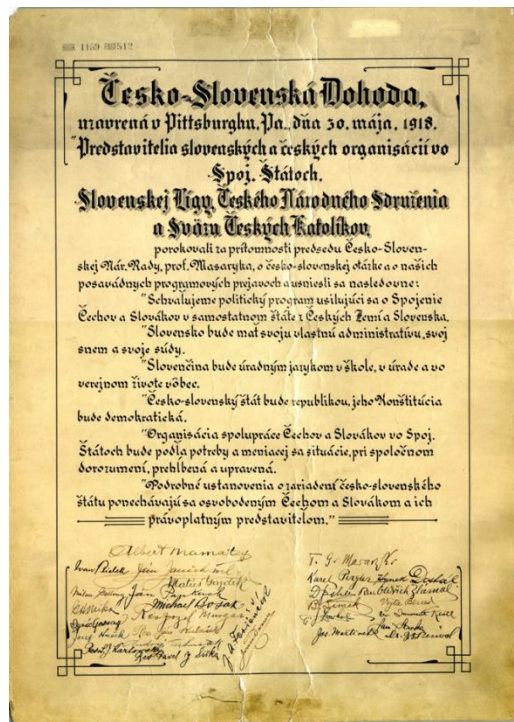 Česko-Slovenská Dohoda,
uzavrená v Pittsburghu, Pa., dňa 30. mája, 1918.
"Predstavitelia slovenských a českých organisácií vo
Spoj. Štátoch,
Slovenskej Ligy, Českého Národného Sdruženia
a Sväzu Českých Katolíkov,
porokovali za prítomnosti predsedu Česko-Sloven-
skej Nár. Rady, prof. Masaryka, o česko-slovenskej otázke a o našich
posavádnych programových prejavoch a usniesli sa nasledovne:
"Schvaľujeme politický program usilujúci sa o Spojenie
Čechov a Slovákov v samostatnom štáte z Českých Zemí a Slovenska.
"Slovensko bude mať svoju vlastnú administratívu, svoj
snem a svoje súdy.
"Slovenčina bude úradným jazykom v škole, v úrade a vo
verejnom živote vôbec.
"Česko-slovenský štát bude republikou, jeho Konštitúcia
bude demokratická.
"Organisácia spolupráce Čechov a Slovákov vo Spoj.
Štátoch bude podľa potreby a meniacej sa situácie, pri spoločnom
dorozumení, prehĺbená a upravená.
"Podrobné ustanovenia o zariadení česko-slovenského
štátu ponechávajú sa osvobodeným Čechom a Slovákom a ich
právoplatným predstaviteľom."
Albert Mamatey
T. G. Masaryk
Ivan Bielek Ján Janček ml.
Karel Pergler Hynek Dostál
Matúš Gazdík
Ján Pajkoš
Michael Bosák
Jozef Hušek
Jos. Martinek